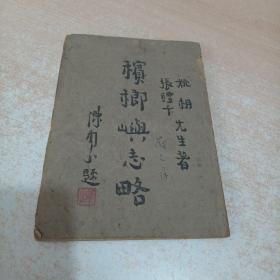 姚枬 先生著
張禮千
檳榔嶼志略
題